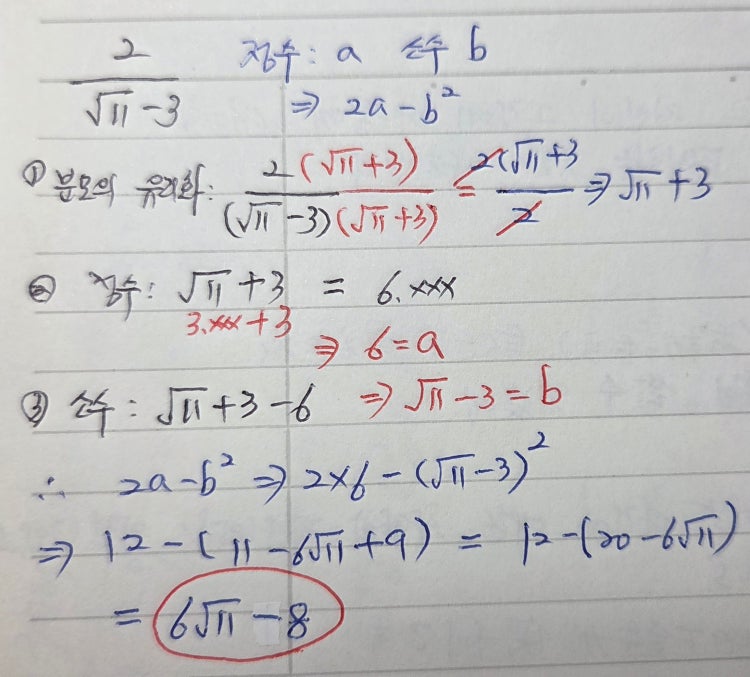 2/(√11-3) 정수: a 소수 b
⇒ 2a-b²
① 분모의 유리화: 2(√11+3)/(√11-3)(√11+3) = 2(√11+3/2 ⇒ √11+3
② 정수: √11+3 = 6.xxx
3.xxx+3
⇒ 6=a
③ 소수: √11+3-6 ⇒ √11-3=b
∴ 2a-b² ⇒ 2×6-(√11-3)²
⇒ 12-(11-6√11+9) = 12-(20-6√11)
= 6√11-8